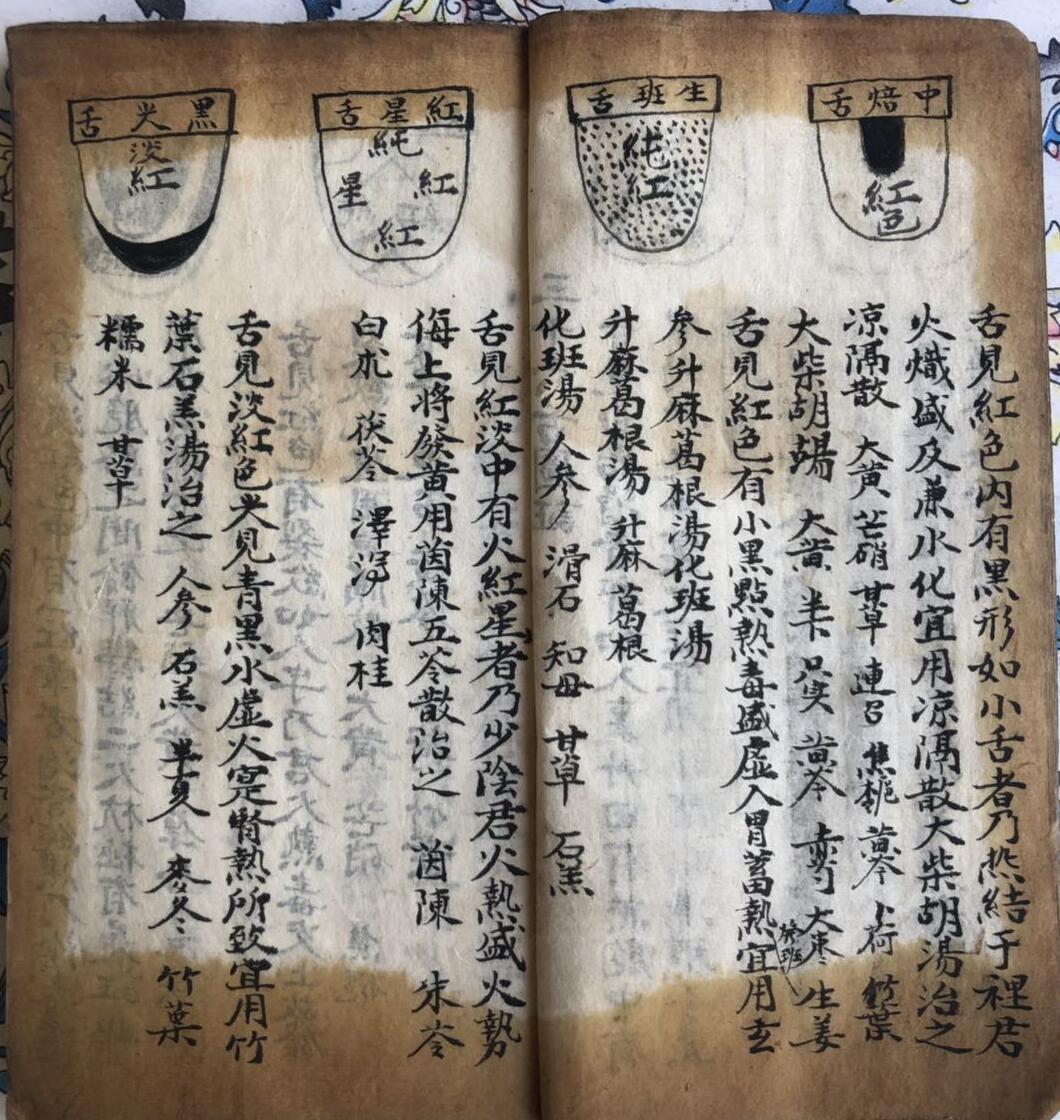 中焙舌
紅色
舌見紅色内有黑形如小舌者乃热結于裡君
火熾盛及兼水化宜用凉隔散大柴胡湯治之
凉隔散 大黄 芒硝 甘草 連召 焦栀 黄芩 卜荷 竹葉
大柴胡湯 大黄 半 只实 黄芩 赤芍 大枣 生姜
生班舌
純紅
舌見紅色有小黑點熱毒盛虚入胃蓄熱宜用玄
發班
参升麻葛根湯化班湯
升麻葛根湯 升麻 葛根
化班湯 人参 滑石 知母 甘草 石羔
紅星舌
純
紅
星
紅
舌見紅淡中有火紅星者乃少陰君火熱盛火勢
侮上將發黄用茵陳五苓散治之 茵陳 朱苓
白朮 茯苓 澤泻 肉桂
黑尖舌
淡紅
舌見淡紅色尖見青黑水虚火寔腎熱所致宜用竹
葉石羔湯治之 人参 石羔 半夏 麥冬 竹葉
糯米 甘草